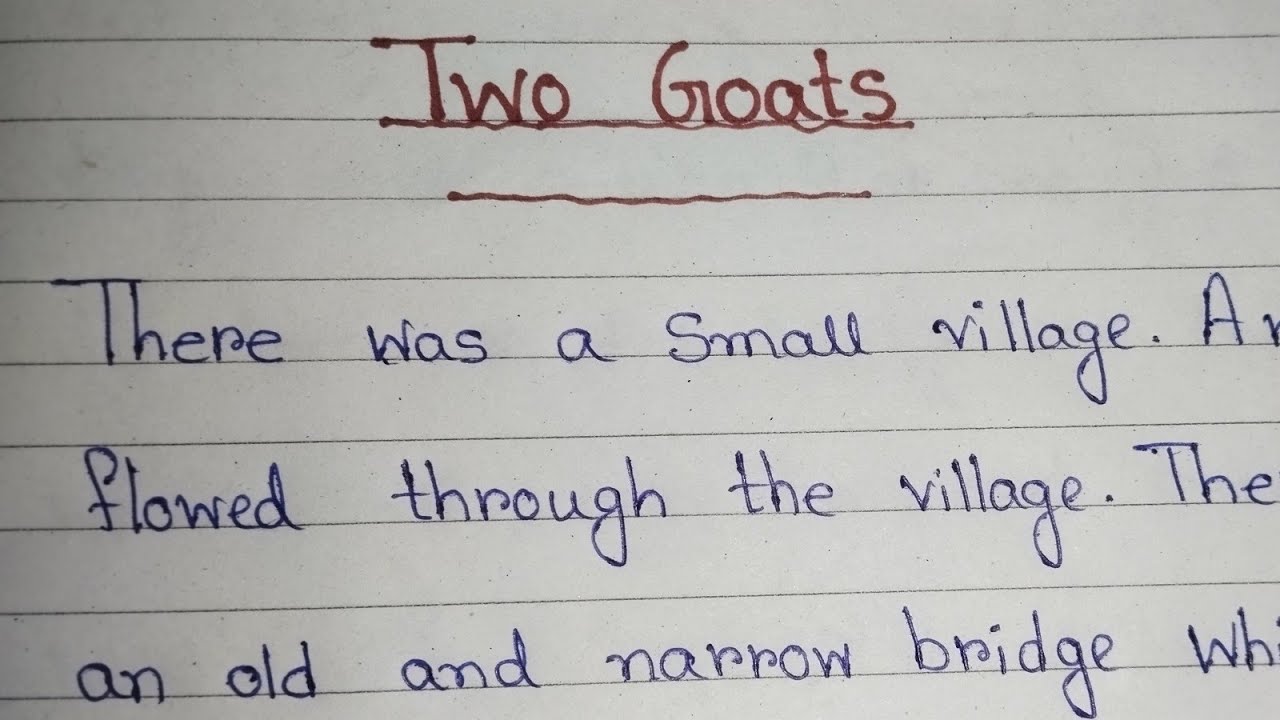 Two Goats
There was a Small village. A
flowed through the village. The
an old and narrow bridge